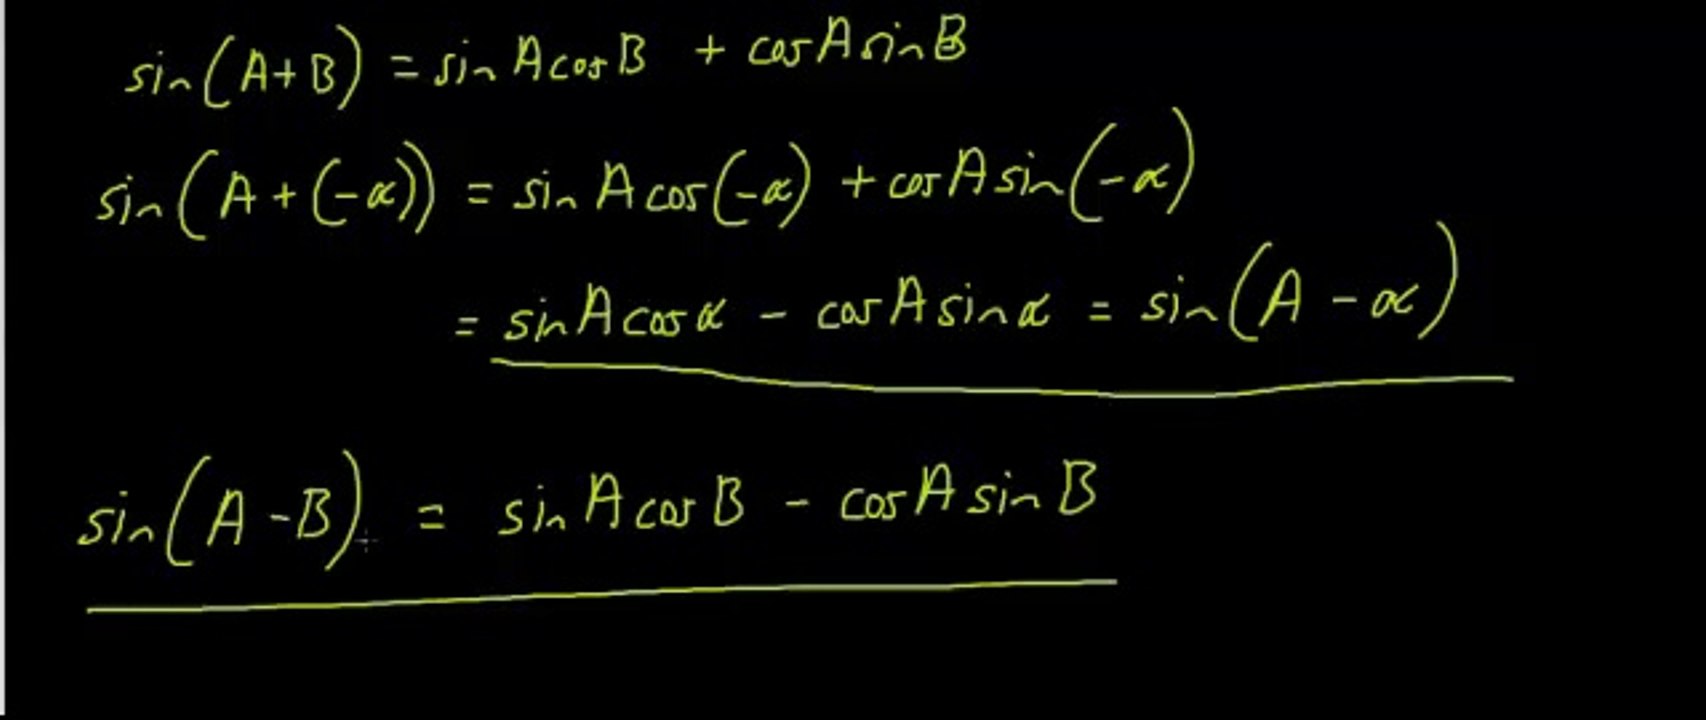 sin(A+B) = sin A cos B + cos A sin B
sin(A+(-α)) = sin A cos(-α) + cos A sin(-α)
= sin A cos α - cos A sin α = sin(A - α)
sin(A-B) = sin A cos B - cos A sin B